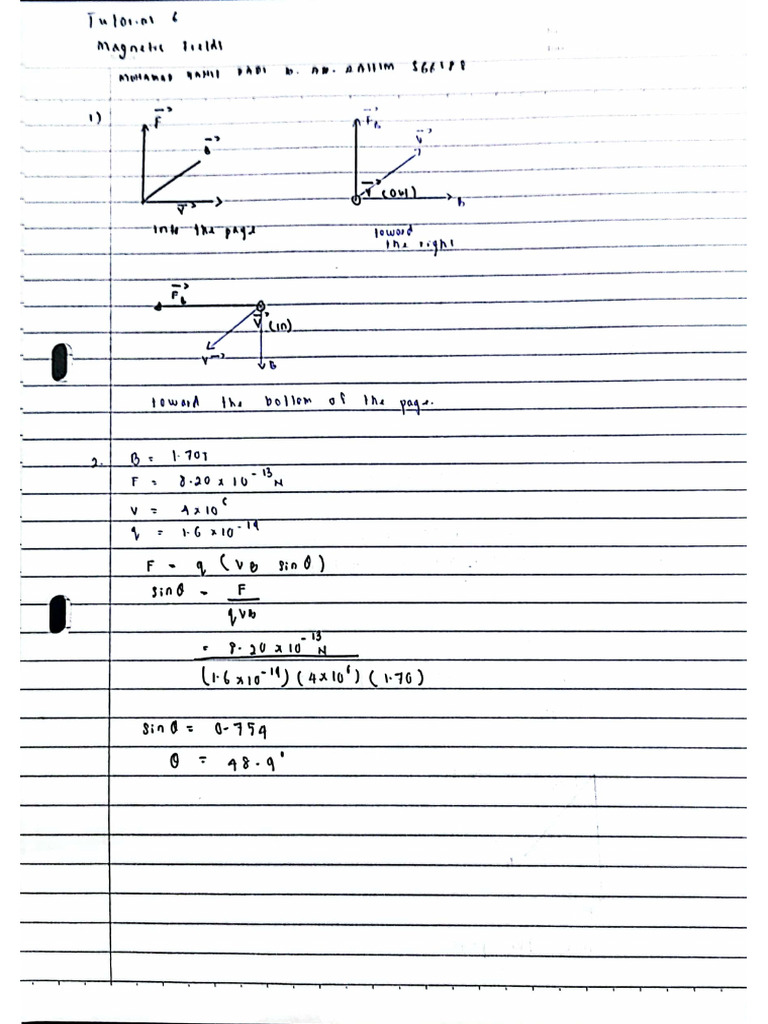 Tutorial 6
Magnetic Fields
1)
F→ B→ V→
into the page
F→B V→ V→ (out) B
toward
the right
F→b V→ (in) V→ B
toward the bottom of the page.
2. B = 1.70T
F = 8.20 x 10^-13 N
V = 4x10^6
q = 1.6 x10^-19
F = q (VB sinθ)
sinθ = F
qVB
= 8.20 x10^-13 N
(1.6 x10^-19) (4x10^6) (1.70)
sinθ = 0.754
θ = 48.9°